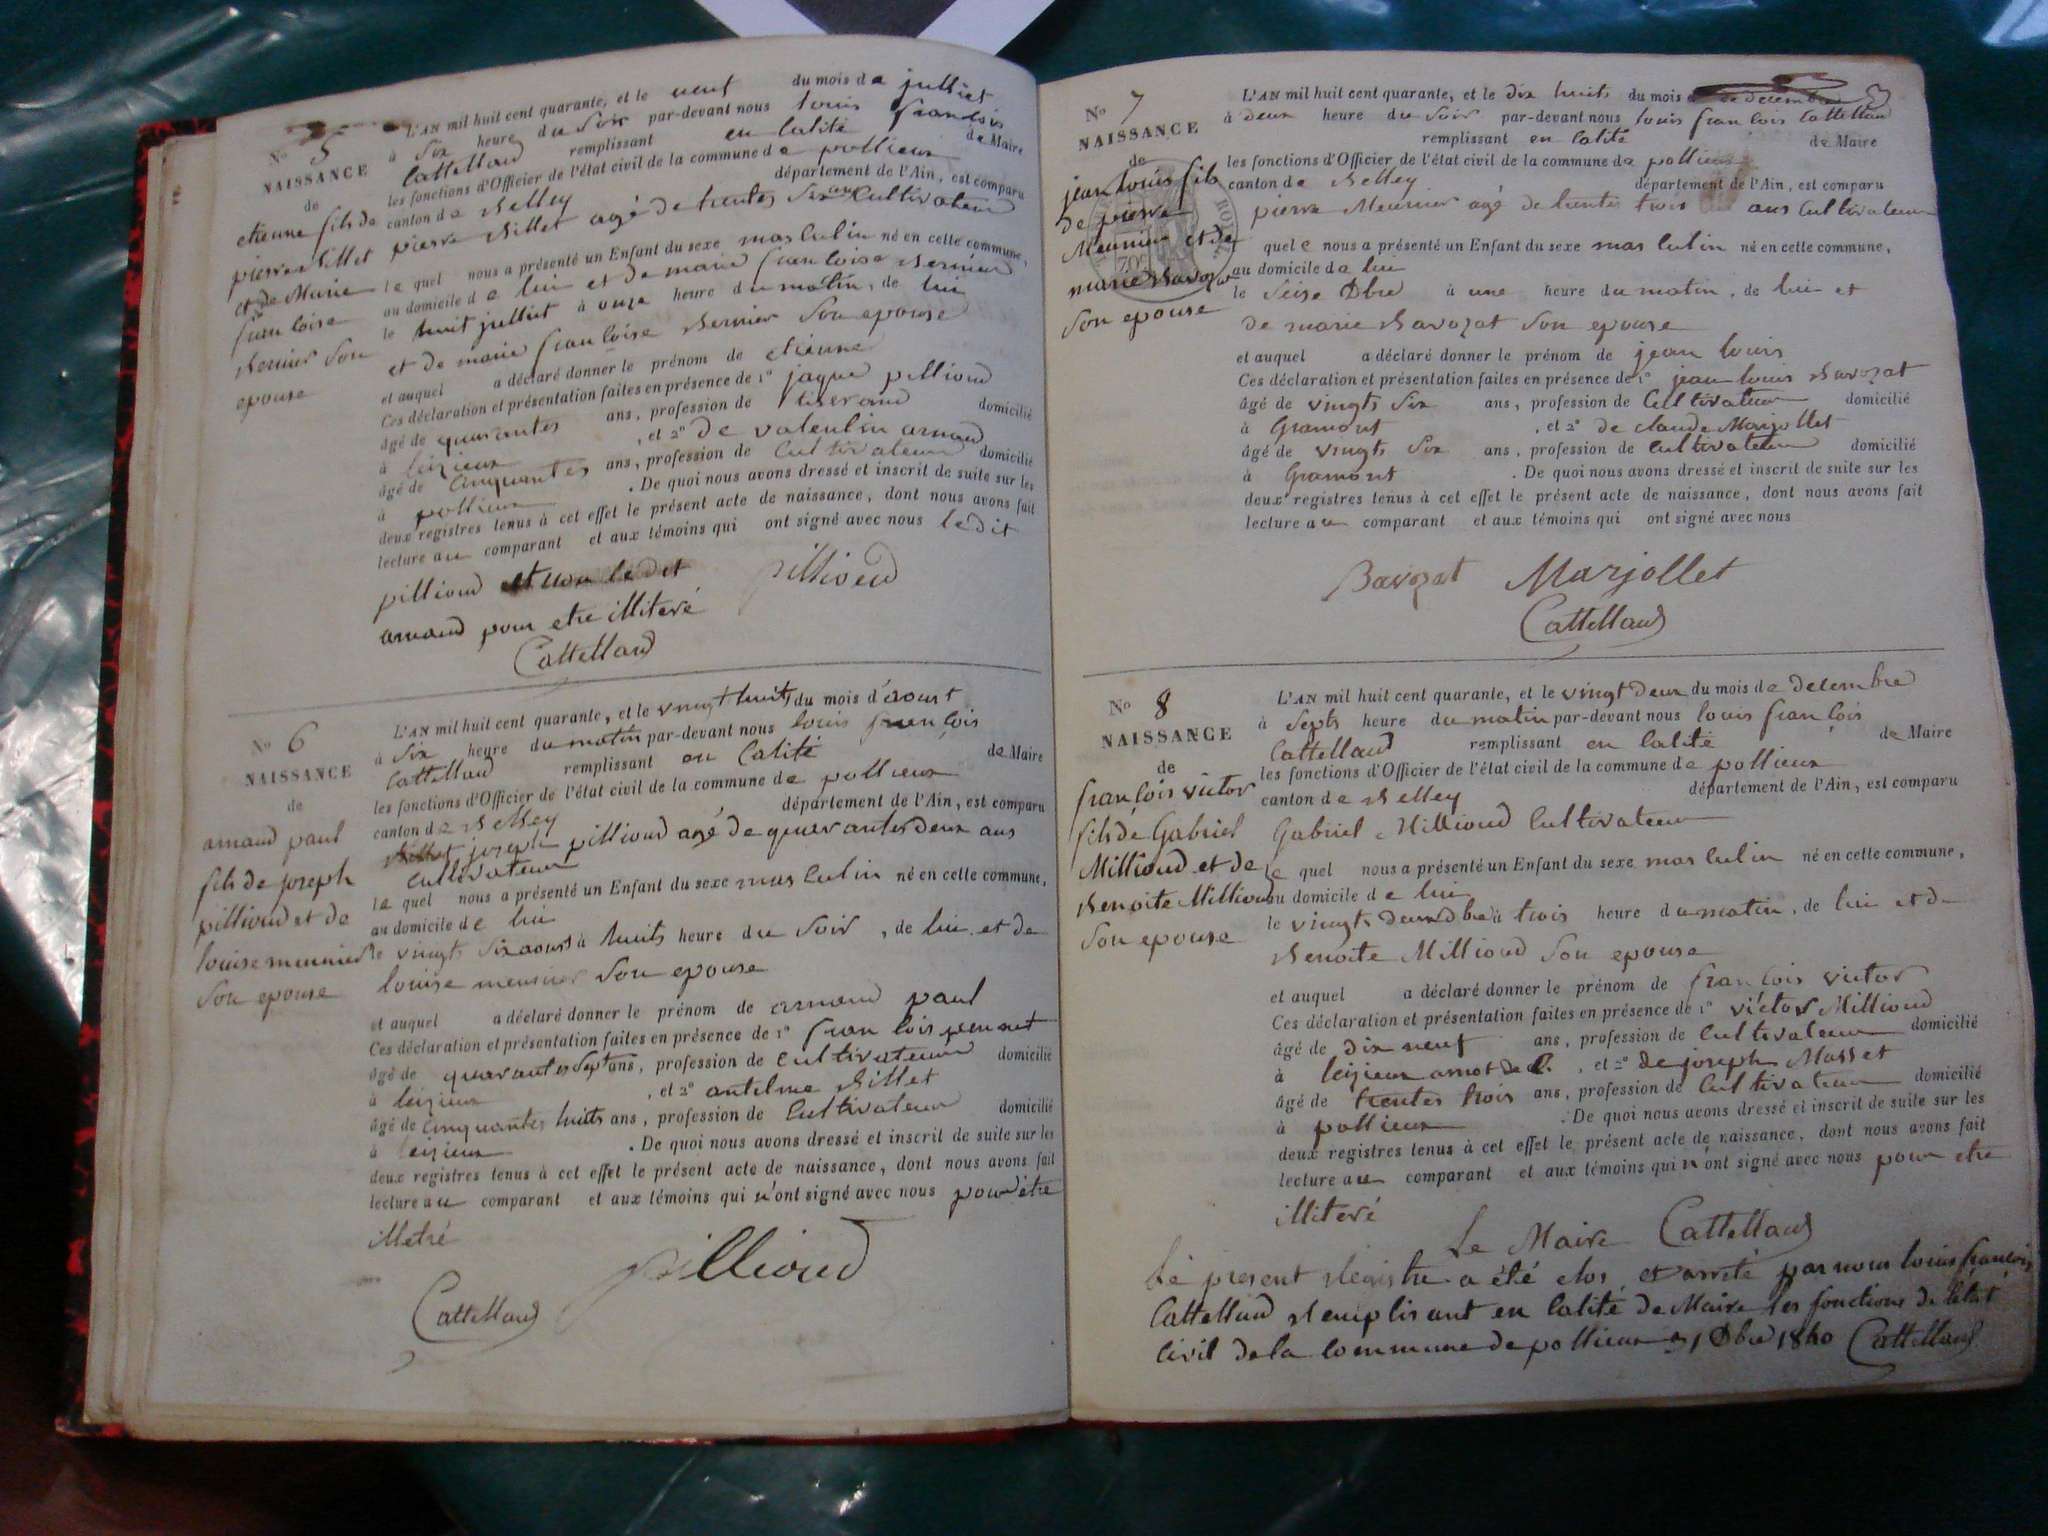 No 5
NAISSANCE
de
etienne fils de
pierre Billet
et de Marie
françoise
Bernier son
epouse
L'AN mil huit cent quarante, et le neuf du mois de julliet
à six heure du soir par-devant nous louis françois
Cattelland remplissant en calité de Maire
les fonctions d'Officier de l'état civil de la commune de pollieux
canton de Belley département de l'Ain, est comparu
pierre Billet agé de trentes six ans Cultivateur
le quel nous a présenté un Enfant du sexe masculin né en cette commune,
au domicile de lui et de marie françoise Bernier
le huit julliet à onze heure du matin, de lui
et de marie françoise Bernier son epouse
et auquel a déclaré donner le prénom de etienne
Ces déclaration et présentation faites en présence de 1º jaque pillioud
âgé de quarantes ans, profession de tiserand domicilié
à leizieux, et 2º de valentin arnaud
âgé de cinquantes ans, profession de Cultivateur domicilié
à pollieux. De quoi nous avons dressé et inscrit de suite sur les
deux registres tenus à cet effet le présent acte de naissance, dont nous avons fait
lecture au comparant et aux témoins qui ont signé avec nous le dit
pillioud et non le dit
arnaud pour etre illiteré
Pillioud
Cattelland
No 6
NAISSANCE
de
arnaud paul
fils de joseph
pillioud et de
louise meunier
son epouse
L'AN mil huit cent quarante, et le vingt huits du mois d'aoust
à six heure du matin par-devant nous louis françois
Cattelland remplissant en Calité de Maire
les fonctions d'Officier de l'état civil de la commune de pollieux
canton de Belley département de l'Ain, est comparu
joseph pillioud agé de quarantes deux ans
cultivateur
le quel nous a présenté un Enfant du sexe masculin né en cette commune,
au domicile de lui
le vingts six aoust à huits heure du soir, de lui et de
louise meunier son epouse
et auquel a déclaré donner le prénom de arnaud paul
Ces déclaration et présentation faites en présence de 1º françois
âgé de quarantes sept ans, profession de cultivateur domicilié
à leizieux, et 2º antelme Billet
âgé de cinquantes huits ans, profession de Cultivateur domicilié
à leizieux. De quoi nous avons dressé et inscrit de suite sur les
deux registres tenus à cet effet le présent acte de naissance, dont nous avons fait
lecture au comparant et aux témoins qui n'ont signé avec nous pour être
illetré
Pillioud
Cattelland
No 7
NAISSANCE
de
jean louis fils
de pierre
Meunier et de
marie Bavozat
son epouse
L'AN mil huit cent quarante, et le dix huits du mois de decembre
à deux heure du soir par-devant nous louis françois Cattelland
remplissant en calité de Maire
les fonctions d'Officier de l'état civil de la commune de pollieux
canton de Belley département de l'Ain, est comparu
pierre Meunier agé de trentes trois ans Cultivateur
le quel nous a présenté un Enfant du sexe masculin né en cette commune,
au domicile de lui
le seise Dbre à une heure du matin, de lui et
de marie Bavozat son epouse
et auquel a déclaré donner le prénom de jean louis
Ces déclaration et présentation faites en présence de 1º jean louis Bavozat
âgé de vingts six ans, profession de Cultivateur domicilié
à Gramont, et 2º de claude Marjollet
âgé de vingts six ans, profession de cultivateur domicilié
à Gramont. De quoi nous avons dressé et inscrit de suite sur les
deux registres tenus à cet effet le présent acte de naissance, dont nous avons fait
lecture au comparant et aux témoins qui ont signé avec nous
Bavozat Marjollet
Cattelland
No 8
NAISSANCE
de
françois victor
fils de Gabriel
Millioud et de
Benoite Millioud
son epouse
L'AN mil huit cent quarante, et le vingt deux du mois de decembre
à septs heure du matin par-devant nous louis françois
Cattelland remplissant en calité de Maire
les fonctions d'Officier de l'état civil de la commune de pollieux
canton de Belley département de l'Ain, est comparu
Gabriel Millioud Cultivateur
le quel nous a présenté un Enfant du sexe masculin né en cette commune,
au domicile de lui
le vingts deux dbre à trois heure du matin, de lui et de
Benoite Millioud son epouse
et auquel a déclaré donner le prénom de françois victor
Ces déclaration et présentation faites en présence de 1º victor Millioud
âgé de dix neuf ans, profession de cultivateur domicilié
à leizieux, et 2º de joseph Masset
âgé de trentes trois ans, profession de Cultivateur domicilié
à pollieux. De quoi nous avons dressé et inscrit de suite sur les
deux registres tenus à cet effet le présent acte de naissance, dont nous avons fait
lecture au comparant et aux témoins qui n'ont signé avec nous pour etre
illiteré
Le Maire Cattelland
le present Registre a été clos et arreté par nous louis françois
Cattelland Remplisant en calité de Maire les fonctions de létat
civil de la commune de pollieux 31 Dbre 1840 Cattelland